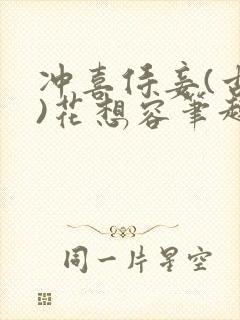 冲喜侍妾(古
)花想容笔趣
同一片星空